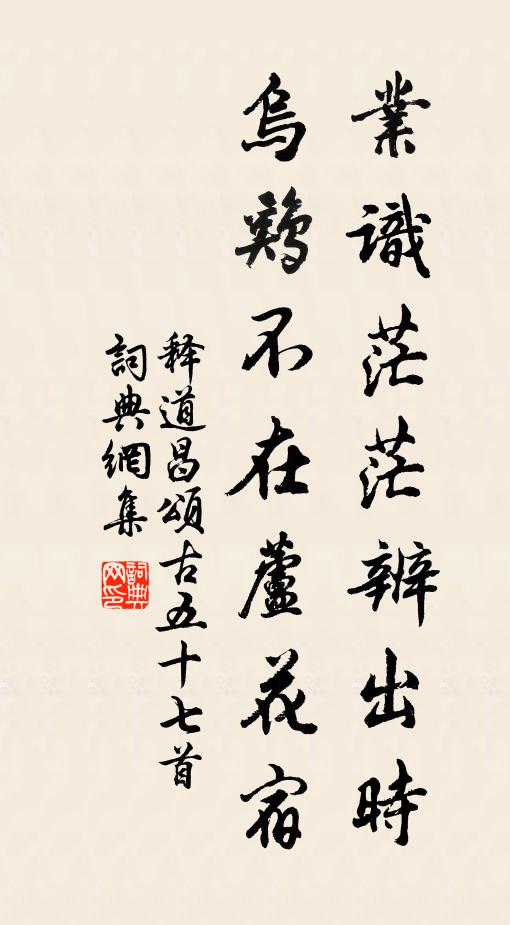 業識茫茫辨出時
烏鷄不在蘆花宿
释道昌頌古五十七首
詞典網集
詞典網印